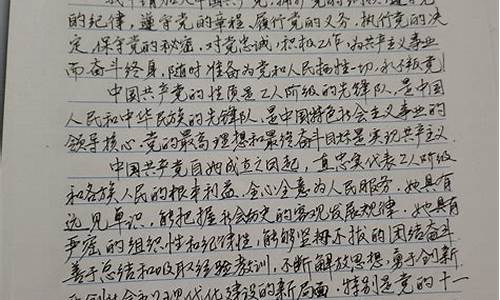 我申请加入中国共产党，拥护党的纲领，遵守党
的纪律，遵守党的章程，履行党的义务，执行党的决
定，保守党的秘密，对党忠诚，积极工作，为共产主义事业
而奋斗终身，随时准备为党和人民牺牲一切，永不叛党。
中国共产党的性质是工人阶级的先锋队，是中国
人民和中华民族的先锋队，是中国特色社会主义事业的
领导核心。党的最高理想和最终奋斗目标是实现共产主义。
中国共产党自她成立之日起，直忠实代表工人阶级
和各族人民的根本利益，全心全意为人民服务。她具有
远见卓识，能把握社会历史的客观发展规律。她具有
严密的组织性和纪律性，能够坚持不拔的团结奋斗
善于总结和吸取经验教训，不断解放思想，勇于创新，
社会主义现代化建设的新局面，特别是党的十一